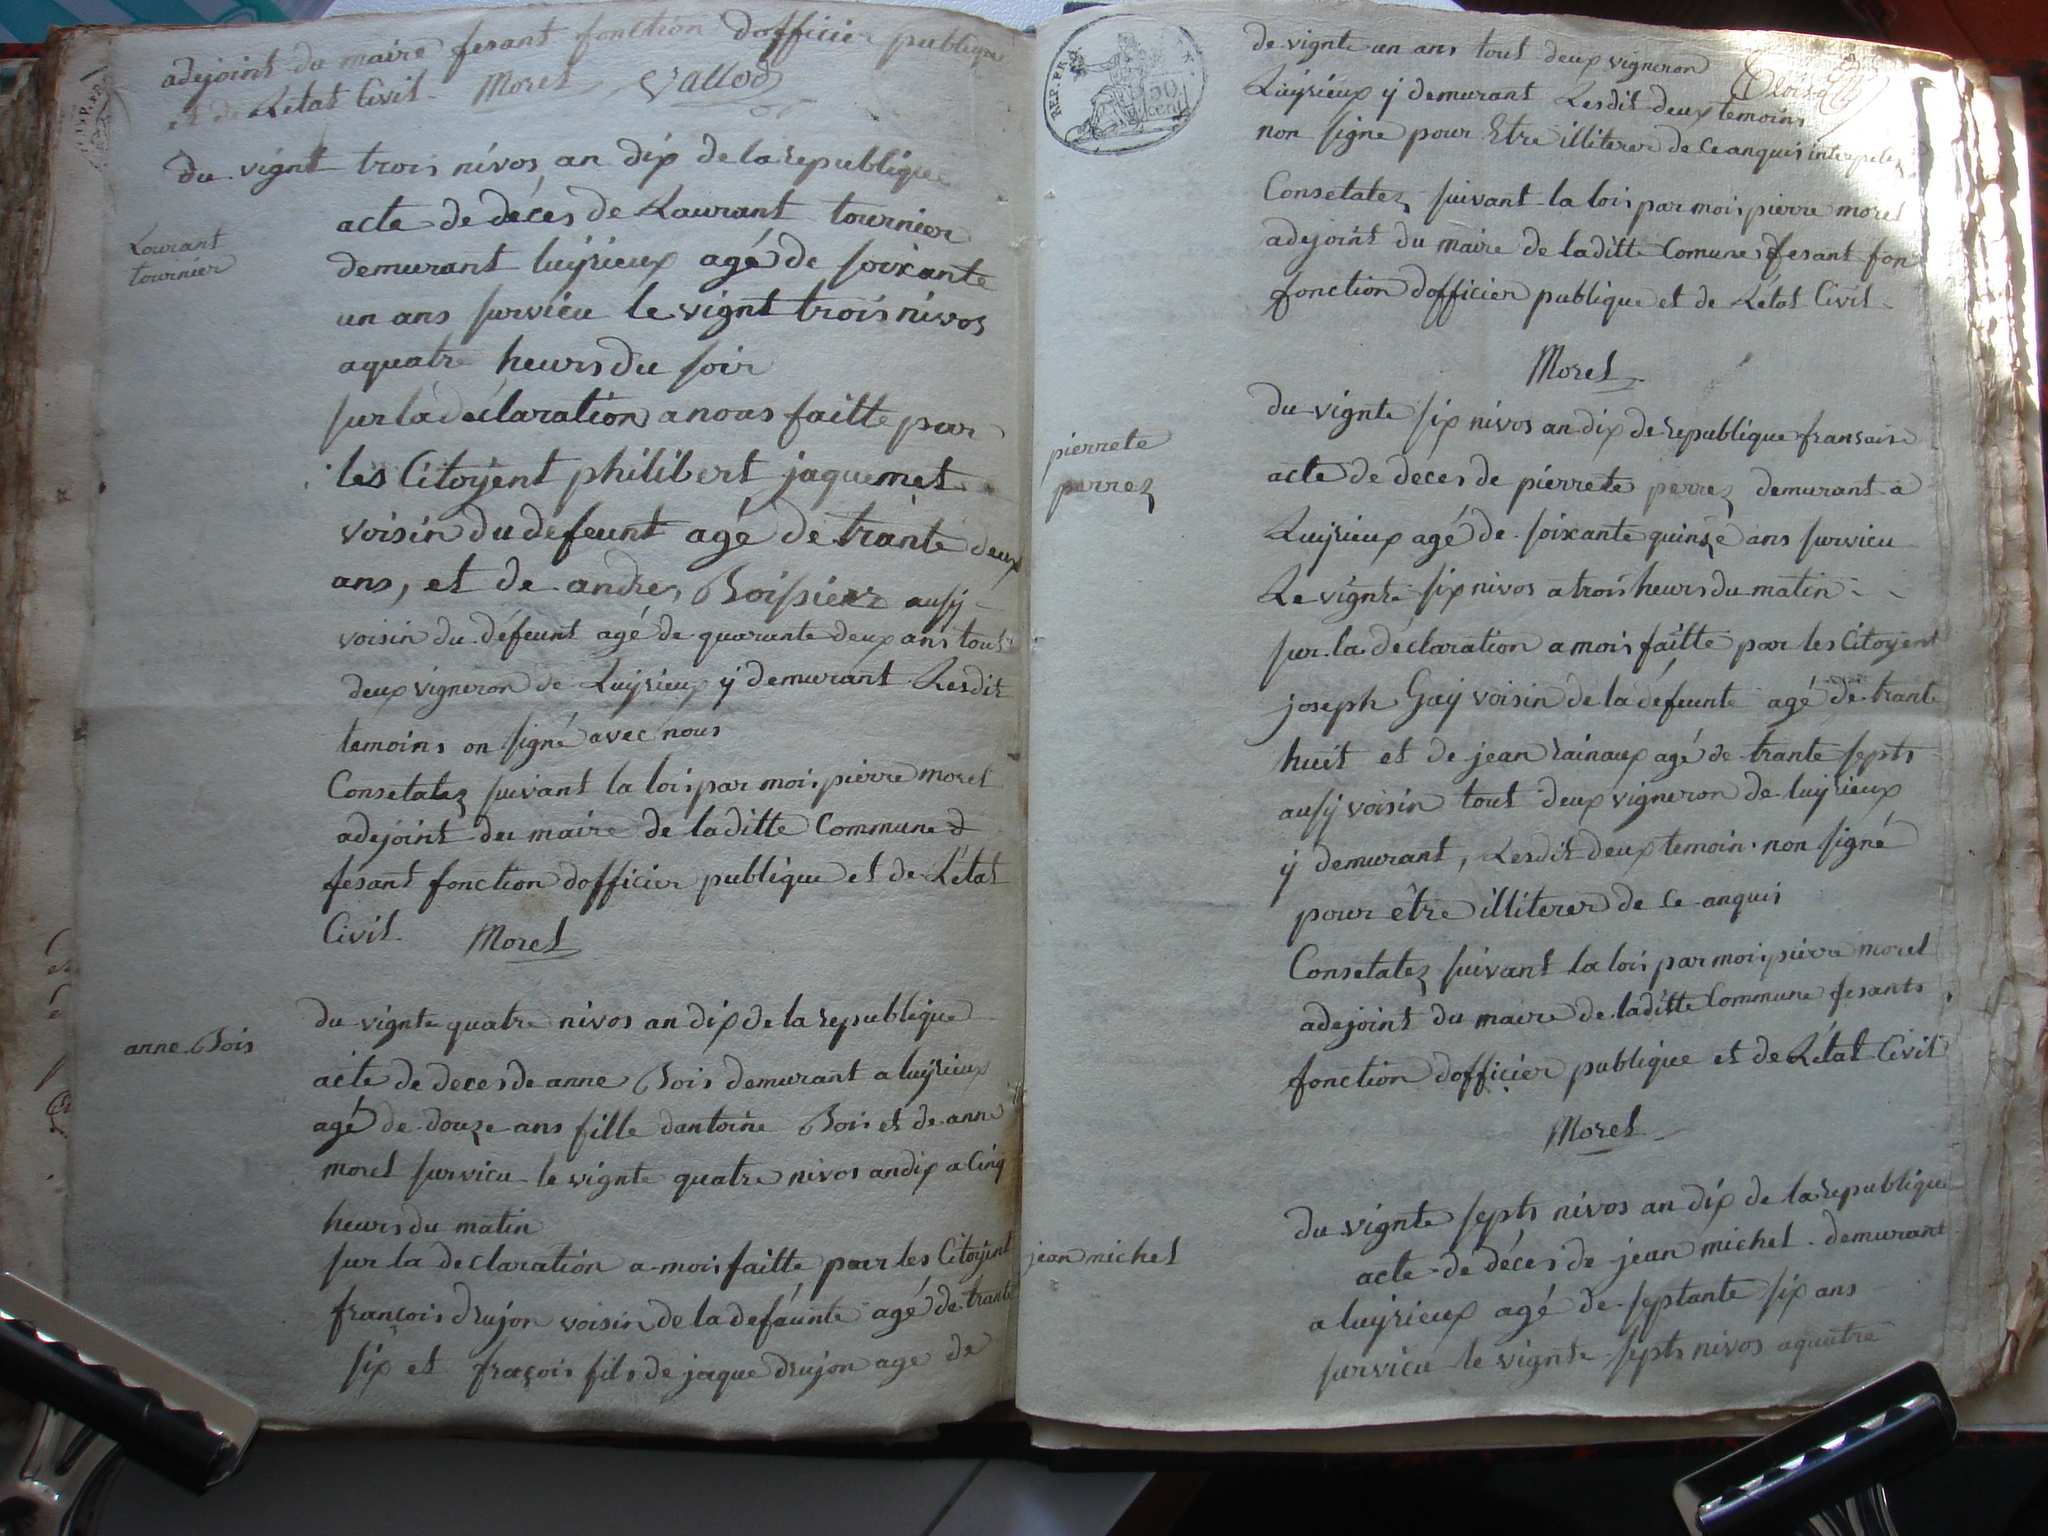 adejoint du maire fesant fonction dofficier publique
et de Letat Civil Morel Vallod
du vignt trois nivos an dix de la republique
Lourant
tournier
acte de déces de Laurant tournier
demurant luÿrieux agé de soixante
un ans survicu le vignt trois nivos
aquatre heurs du soir
sur la déclaration a nous faitte par
les Citoÿent philibert jaquemet
voisin du defeunt agé de trante deux
ans, et de andre Boissier aussÿ
voisin du défeunt agé de quarante deux ans tout
deux vigneron de Luÿrieux ÿ demurant Lesdit
temoins on signé avec nous
Consetatez suivant la loi par moi pierre morel
adejoint du maire de laditte Commune d
fesant fonction dofficier publique et de Létat
Civil Morel
anne Bois
du vignte quatre nivos an dix de la republique
acte de deces de anne Bois demurant a luÿrieux
agé de douze ans fille dantoine Bois et de anne
morel survicu le vignte quatre nivos an dix a Cinq
heurs du matin
sur la declaration a mois faitte par les Citoÿent
françois drujon voisin de la defaunte agé de trante
six et fraçois fils de jaque drujon age de
REP. FRA.
50 cent
de vignte un ans tout deux vigneron
Luÿrieux ÿ demurant Lesdit deux temoins
non signe pour Etre illiterer de ce anquis interpelez
Consetatez suivant la loi par moi pierre morel
adejoint du maire de laditte Comune fesant fon
fonction dofficier publique et de Létat Civil
Morel
pierrete
perrez
du vignte six nivos an dix de republique fransaise
acte de deces de pierrete perrez demurant a
Luÿrieux agé de soixante quinze ans survicu
Le vignte six nivos a trois heurs du matin
sur la déclaration a mois faitte par les Citoÿent
joseph Gaÿ voisin de la défeunte agé de trante
huit et de jean rainaux agé de trante septs
aussÿ voisin tout deux vigneron de luÿrieux
ÿ demurant, Lesdit deux temoin non signé
pour être illiterer de ce anquis
Consetatez suivant la loi par moi pierre morel
adejoint du maire de laditte Commune fesants
fonction dofficier publique et de Létat Civil
Morel
jean michel
du vignte septs nivos an dix de la republique
acte de déces de jean michel demurant
a luÿrieux agé de septante six ans
survicu le vignte septs nivos aquatre